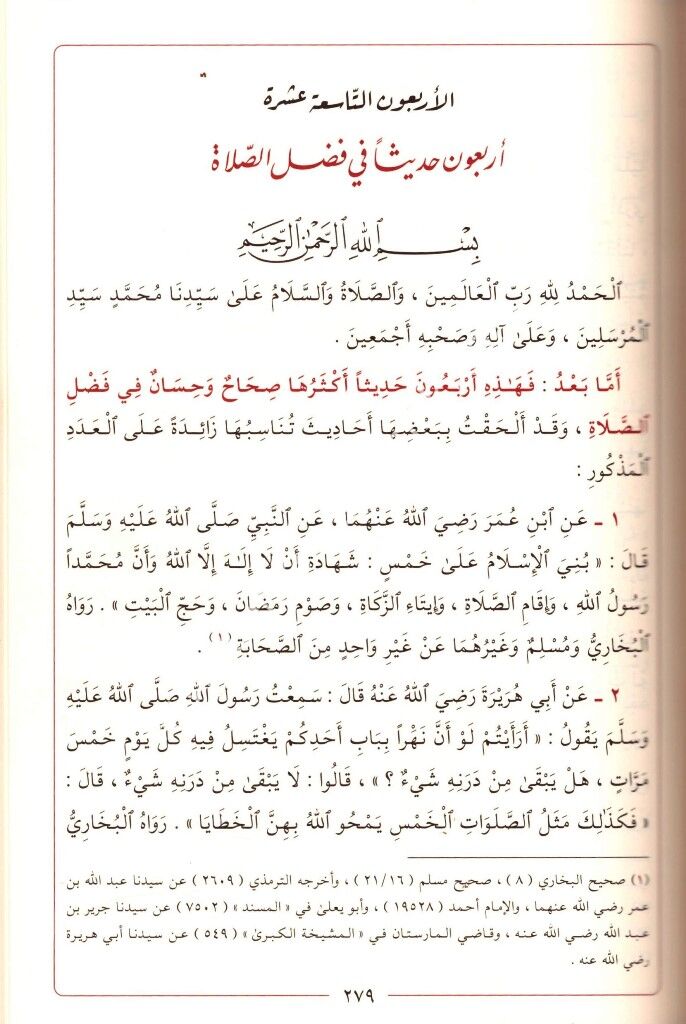 الأربعون التّاسعة عشرة
أربعون حديثاً في فضل الصّلاة
بِسْمِ ٱللهِ ٱلرَّحْمٰنِ ٱلرَّحِيمِ
ٱلْحَمْدُ لِلهِ رَبِّ ٱلْعَالَمِينَ ، وَٱلصَّلَاةُ وَٱلسَّلَامُ عَلَىٰ سَيِّدِنَا مُحَمَّدٍ سَيِّدِ
ٱلْمُرْسَلِينَ ، وَعَلَىٰ آلِهِ وَصَحْبِهِ أَجْمَعِينَ .
أَمَّا بَعْدُ : فَهَـٰذِهِ أَرْبَعُونَ حَدِيثاً أَكْثَرُهَا صِحَاحٌ وَحِسَانٌ فِي فَضْلِ
ٱلصَّلَاةِ ، وَقَدْ أَلْحَقْتُ بِبَعْضِهَا أَحَادِيثَ تُنَاسِبُهَا زَائِدَةً عَلَى ٱلْعَدَدِ
ٱلْمَذْكُورِ :
١ ـ عَنِ ٱبْنِ عُمَرَ رَضِيَ ٱللهُ عَنْهُمَا ، عَنِ ٱلنَّبِيِّ صَلَّى ٱللهُ عَلَيْهِ وَسَلَّمَ
قَالَ : « بُنِيَ ٱلْإِسْلَامُ عَلَىٰ خَمْسٍ : شَهَادَةِ أَنْ لَا إِلَـٰهَ إِلَّا ٱللهُ وَأَنَّ مُحَمَّداً
رَسُولُ ٱللهِ ، وَإِقَامِ ٱلصَّلَاةِ ، وَإِيتَاءِ ٱلزَّكَاةِ ، وَصَوْمِ رَمَضَانَ ، وَحَجِّ ٱلْبَيْتِ » . رَوَاهُ
ٱلْبُخَارِيُّ وَمُسْلِمٌ وَغَيْرُهُمَا عَنْ غَيْرِ وَاحِدٍ مِنَ ٱلصَّحَابَةِ (١) .
٢ ـ عَنْ أَبِي هُرَيْرَةَ رَضِيَ ٱللهُ عَنْهُ قَالَ : سَمِعْتُ رَسُولَ ٱللهِ صَلَّى ٱللهُ عَلَيْهِ
وَسَلَّمَ يَقُولُ : « أَرَأَيْتُمْ لَوْ أَنَّ نَهْراً بِبَابِ أَحَدِكُمْ يَغْتَسِلُ فِيهِ كُلَّ يَوْمٍ خَمْسَ
مَرَّاتٍ ، هَلْ يَبْقَىٰ مِنْ دَرَنِهِ شَيْءٌ ؟ » ، قَالُوا : لَا يَبْقَىٰ مِنْ دَرَنِهِ شَيْءٌ ، قَالَ :
« فَكَذَٰلِكَ مَثَلُ ٱلصَّلَوَاتِ ٱلْخَمْسِ يَمْحُو ٱللهُ بِهِنَّ ٱلْخَطَايَا » . رَوَاهُ ٱلْبُخَارِيُّ
(١) صحيح البخاري ( ٨ ) ، صحيح مسلم ( ٢١/١٦ ) ، وأخرجه الترمذي ( ٢٦٠٩ ) عن سيدنا عبد الله بن
عمر رضي الله عنهما ، والإمام أحمد ( ١٩٥٢٨ ) ، وأبو يعلىٰ في « المسند » ( ٧٥٠٢ ) عن سيدنا جرير بن
عبد الله رضي الله عنه ، وقاضي المارستان في « المشيخة الكبرىٰ » ( ٥٤٩ ) عن سيدنا أبي هريرة
رضي الله عنه .
٢٧٩